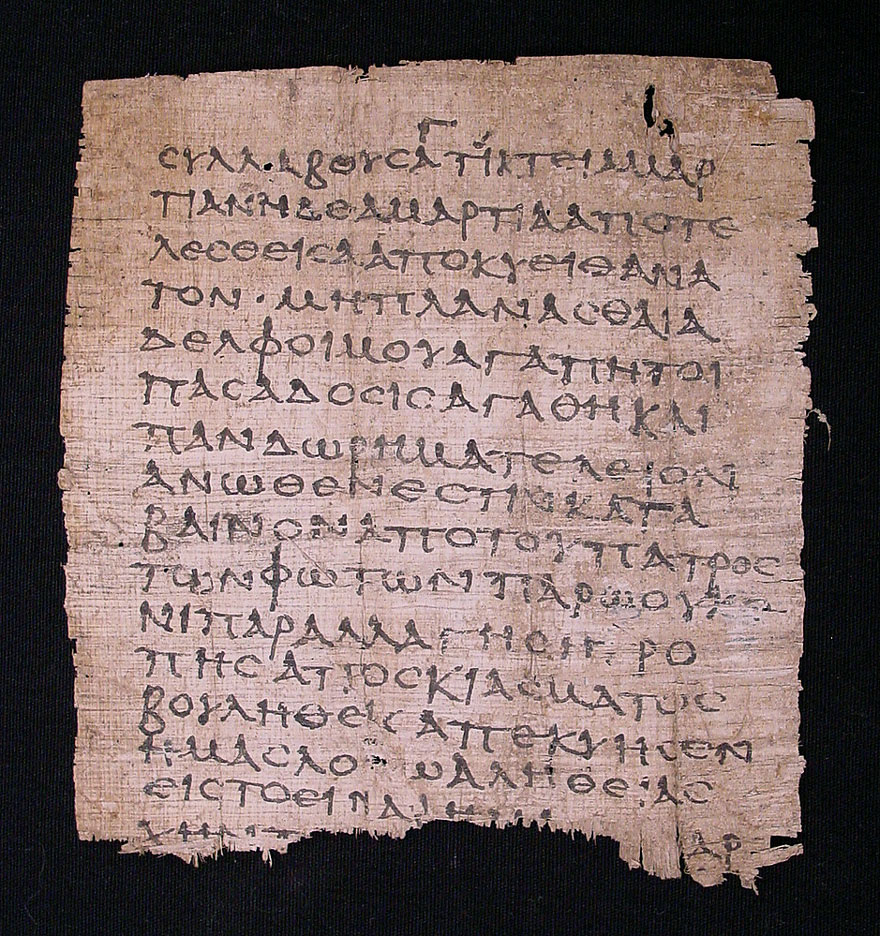 Γ
ϹΥΛΛΑΒΟΥϹΑΤΙΚΤΕΙΑΜΑΡ
ΤΙΑΝΗΔΕΑΜΑΡΤΙΑΑΠΟΤΕ
ΛΕϹΘΕΙϹΑΑΠΟΚΥΕΙΘΑΝΑ
ΤΟΝ·ΜΗΠΛΑΝΑϹΘΑΙΑ
ΔΕΛΦΟΙΜΟΥΑΓΑΠΗΤΟΙ
ΠΑϹΑΔΟϹΙϹΑΓΑΘΗΚΑΙ
ΠΑΝΔΩΡΗΜΑΤΕΛΕΙΟΝ
ΑΝΩΘΕΝΕϹΤΙΝΚΑΤΑ
ΒΑΙΝΟΝΑΠΟΤΟΥΠΑΤΡΟϹ
ΤΩΝΦΩΤΩΝΠΑΡΩΟΥΚΕ
ΝΙΠΑΡΑΛΛΑΓΗϹΗΤΡΟ
ΠΗϹΑΠΟϹΚΙΑϹΜΑΤΟϹ
ΒΟΥΛΗΘΕΙϹΑΠΕΚΥΗϹΕΝ
ΗΜΑϹΛΟΓΩΑΛΗΘΕΙΑϹ
ΕΙϹΤΟΕΙΝΑΙΗΜ
ΑΡ